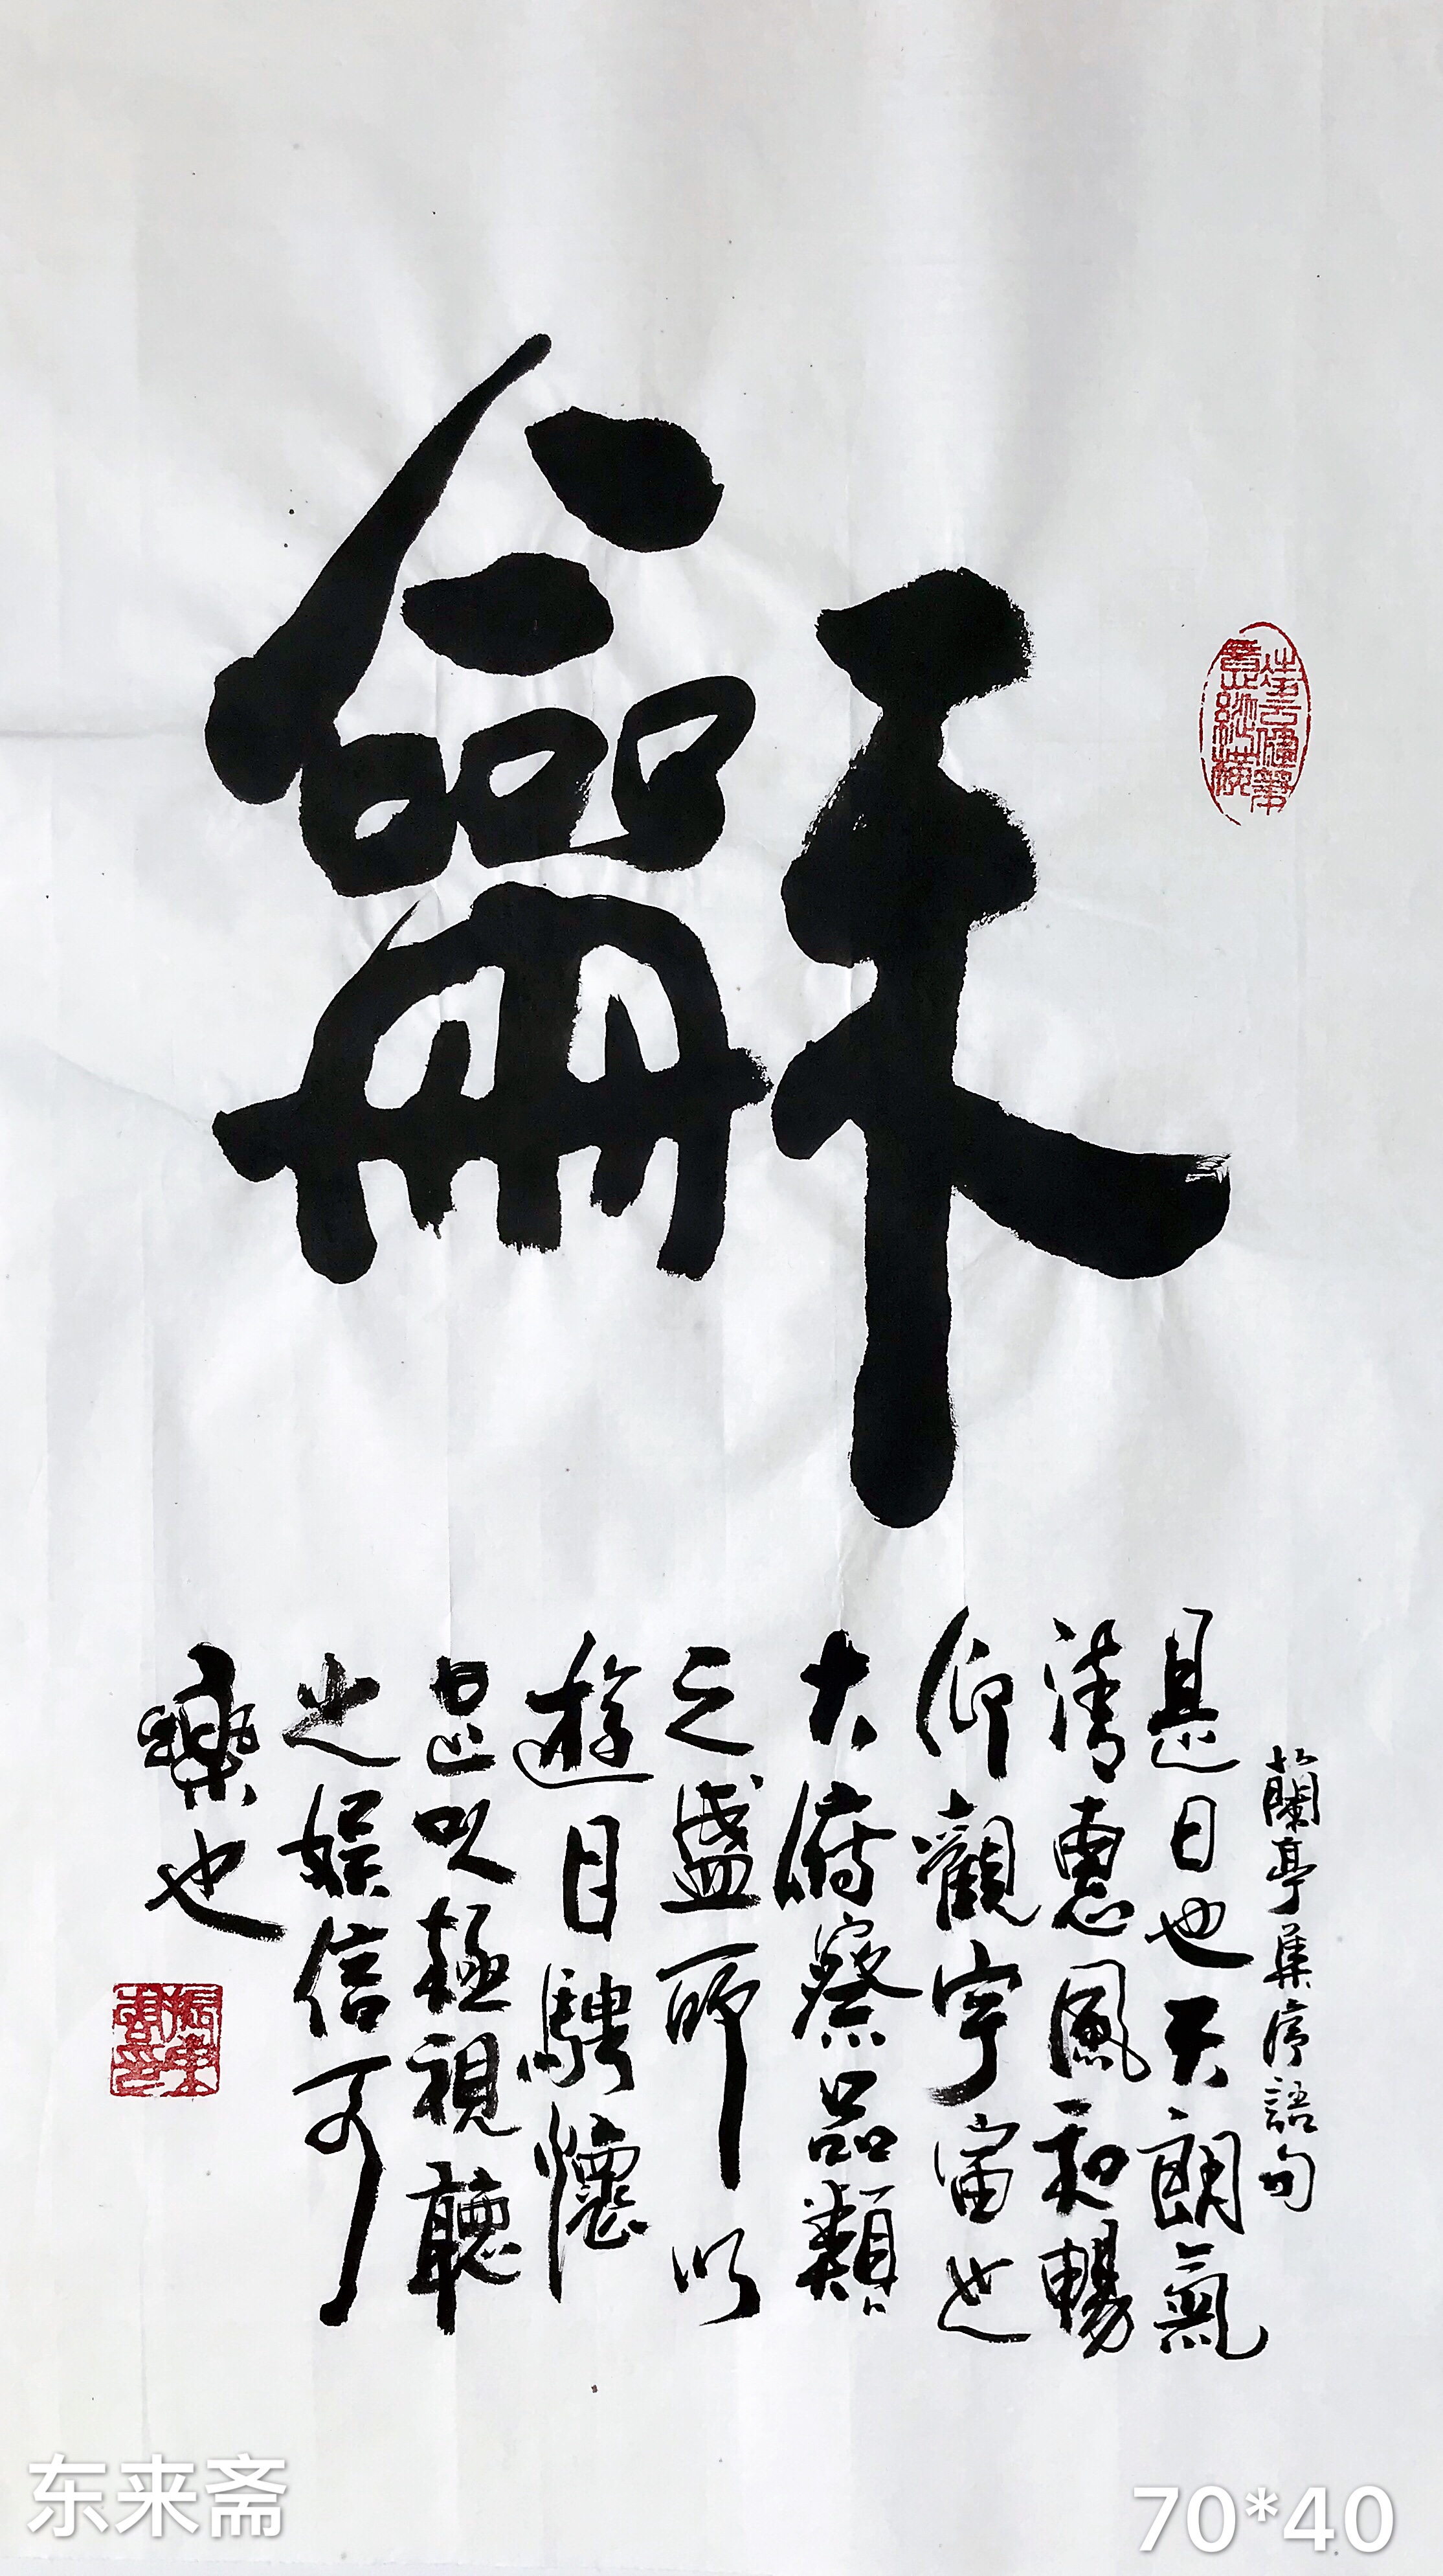 龢
凌云健筆
意縱橫
蘭亭集序語句
是日也天朗氣
清惠風和暢
仰觀宇宙之
大俯察品類
之盛所以
遊目騁懷
足以極視聽
之娛信可
樂也
东来斋
70*40